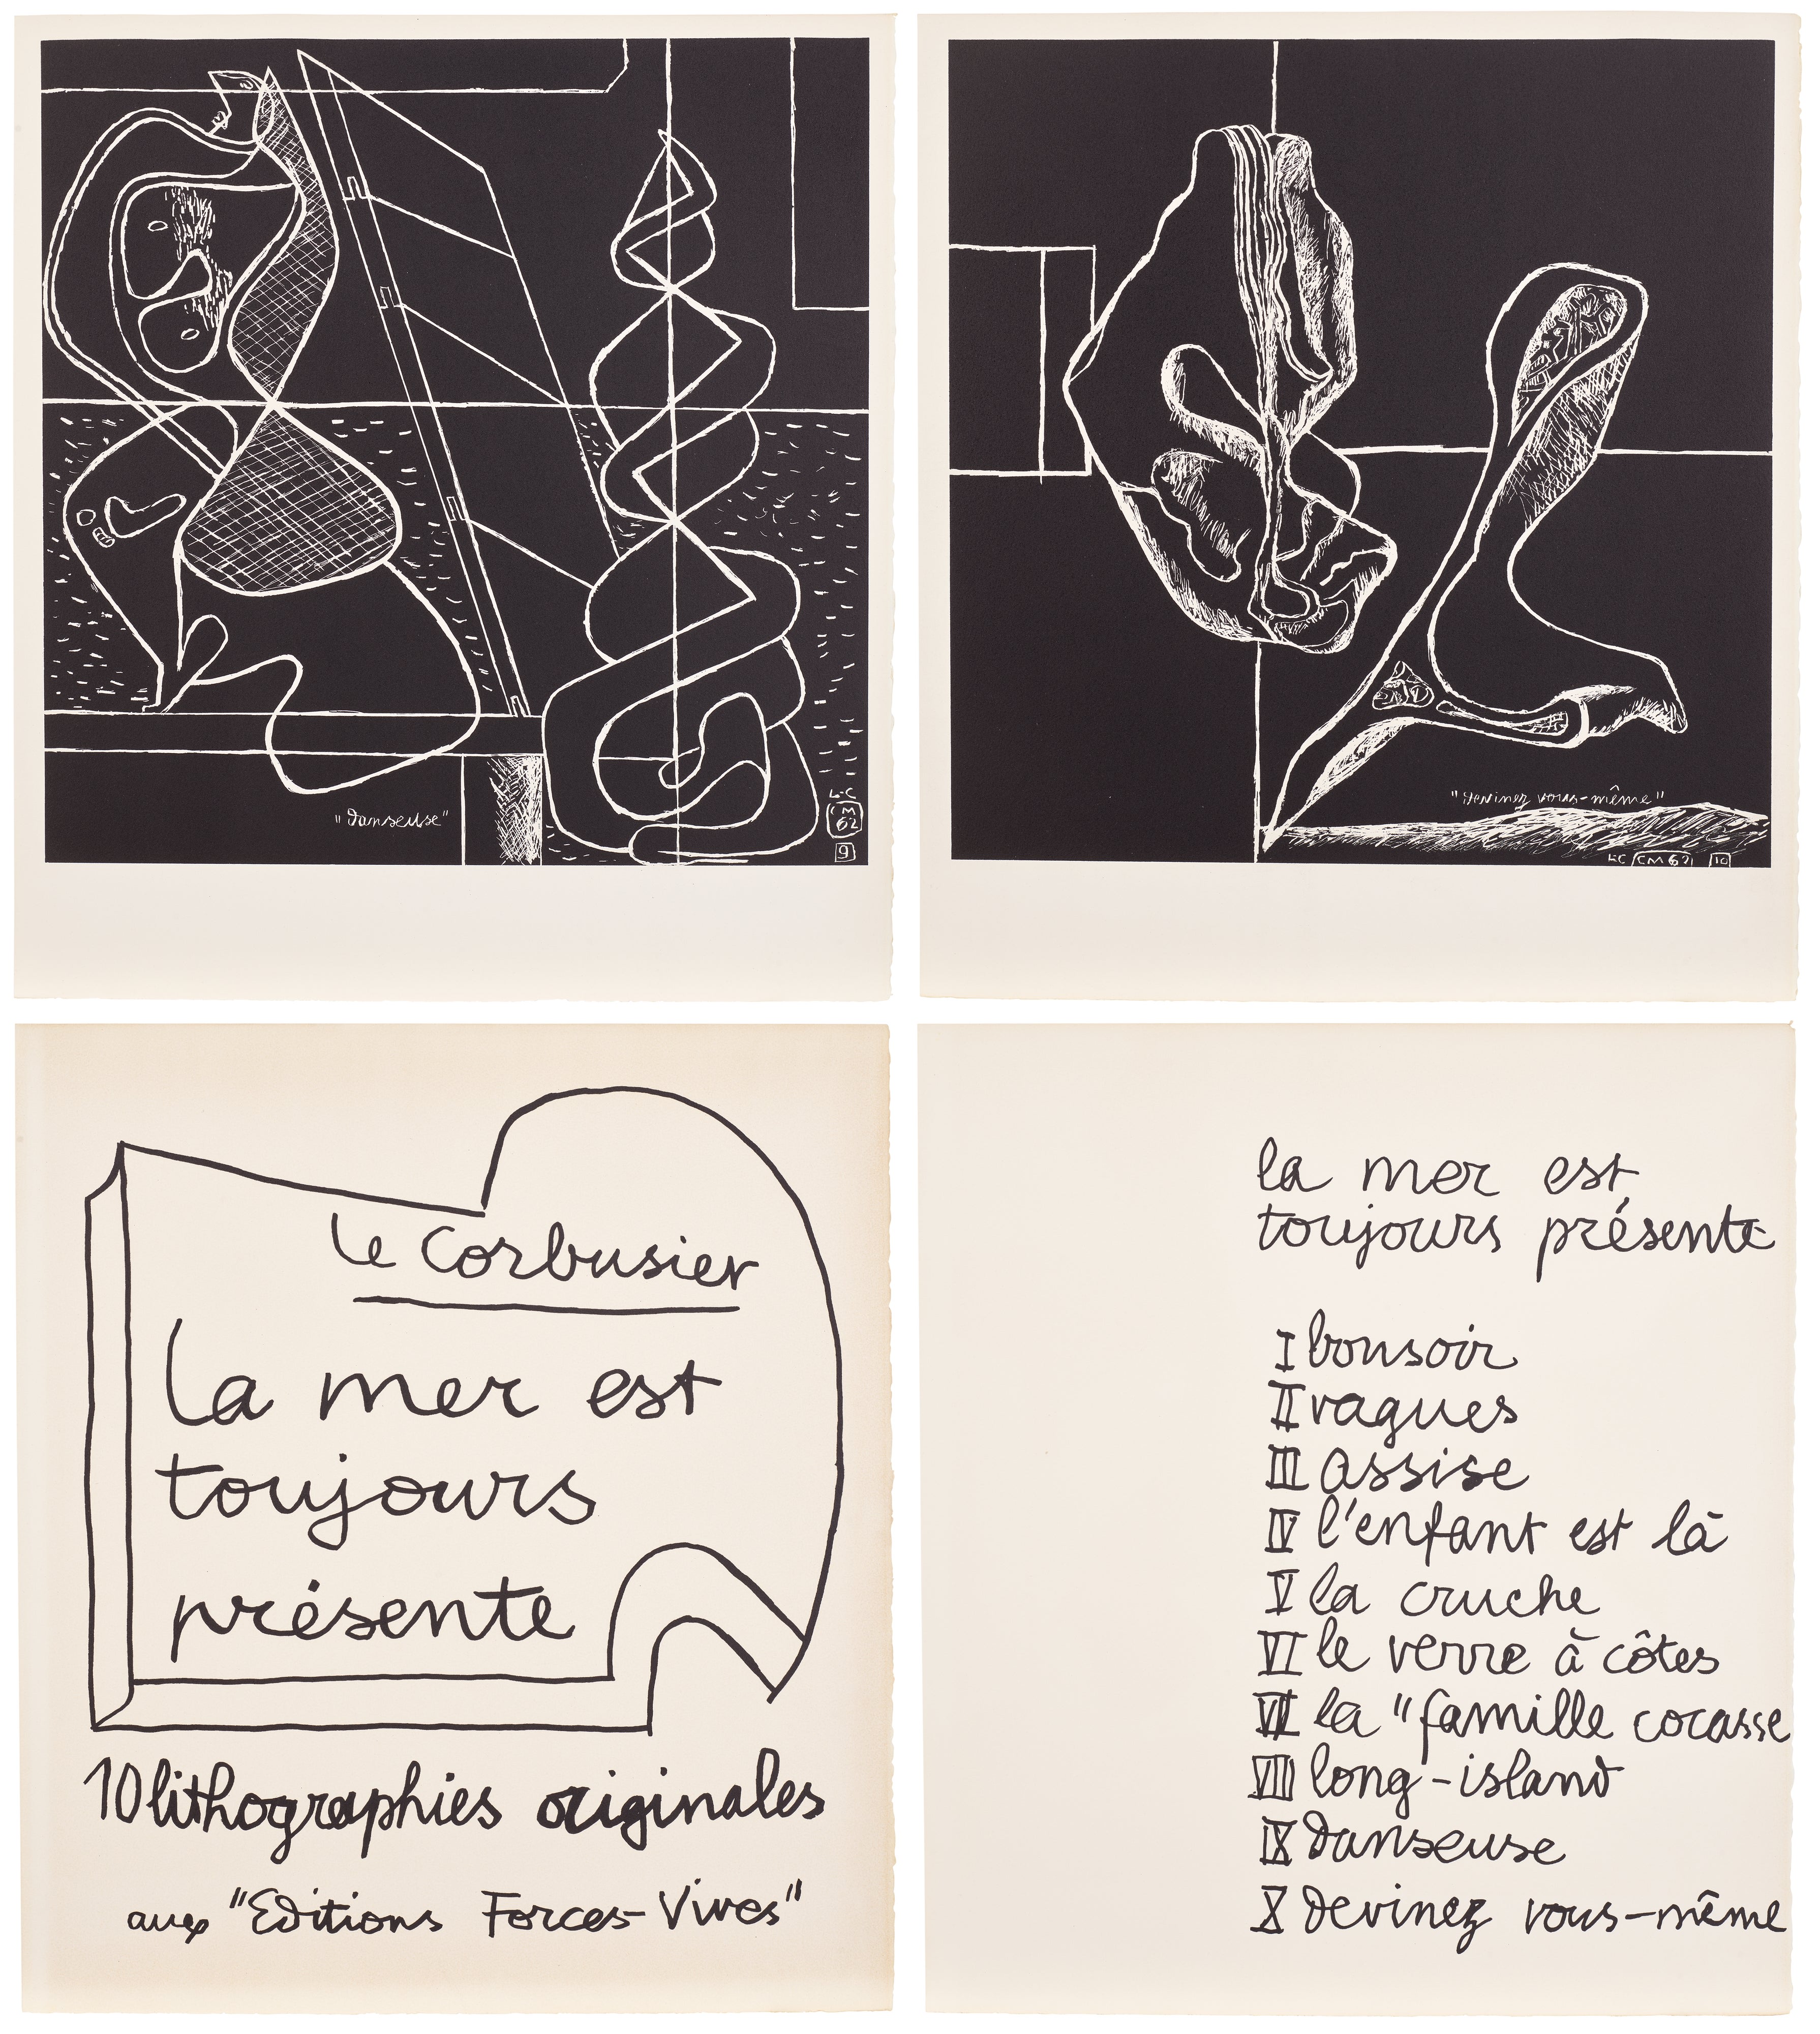 "danseuse"
L-C
M
62
9
"devinez vous-même"
LC CM 62 10
Le Corbusier
La mer est
toujours
présente
10 lithographies originales
aux "Editions Forces-Vives"
la mer est
toujours présente
I bonsoir
II vagues
III assise
IV l'enfant est là
V la cruche
VI le verre à côtes
VII la "famille cocasse
VIII long-island
IX danseuse
X devinez vous-même